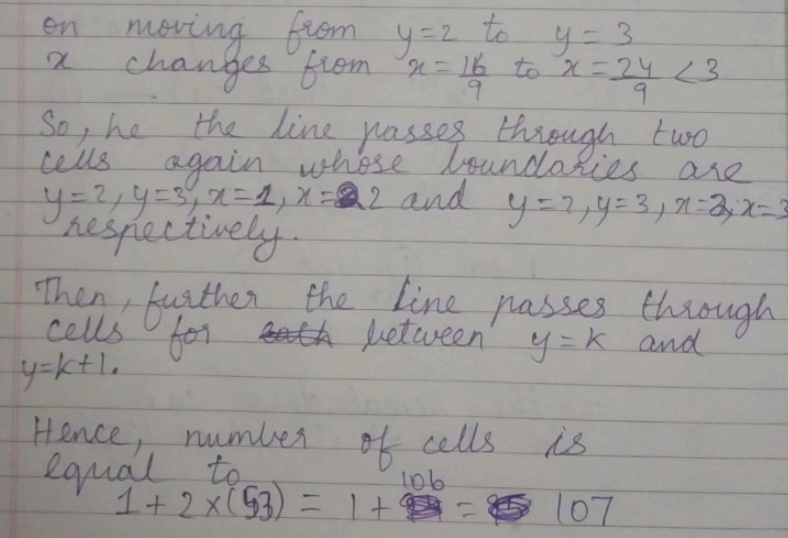 on moving from y=2 to y=3
x changes from x=16/9 to x=24/9 <3
So, he the line passes through two
cells again whose boundaries are
y=2, y=3, x=1, x=2 and y=2, y=3, x=2, x=3
respectively.
Then, further the line passes through
cells for both between y=k and
y=k+1.
Hence, number of cells is
equal to
1+2×(53) = 1+106 = 107